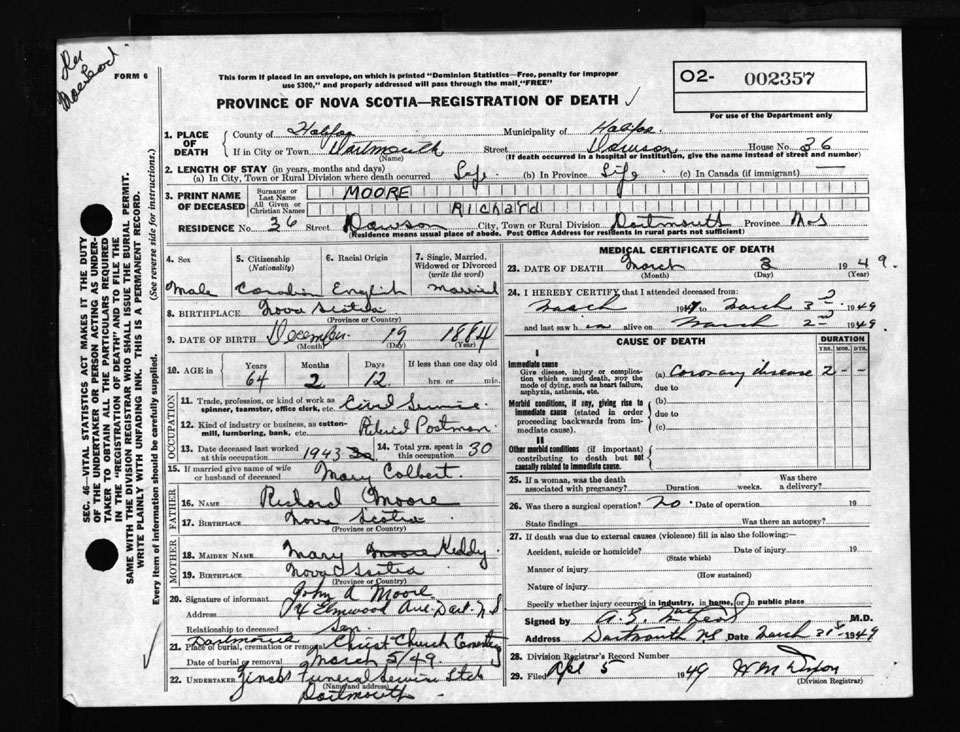 FORM 6
This form if placed in an envelope, on which is printed "Dominion Statistics—Free, penalty for improper
use $300," and properly addressed will pass through the mail "FREE"
O2- 002357
For use of the Department only
PROVINCE OF NOVA SCOTIA—REGISTRATION OF DEATH
1. PLACE OF DEATH County of Halifax Municipality of Halifax
If in City or Town Dartmouth (Name) Street Dawson House No. 36
(If death occurred in a hospital or institution, give the name instead of street and number)
2. LENGTH OF STAY (in years, months and days)
(a) In City, Town or Rural Division where death occurred Life (b) In Province Life (c) In Canada (if immigrant) —
3. PRINT NAME OF DECEASED Surname or Last Name MOORE
All Given or Christian Names Richard
RESIDENCE No. 36 Street Dawson City, Town or Rural Division Dartmouth Province N.S
(Residence means usual place of abode. Post Office Address for residents in rural parts not sufficient)
4. Sex Male
5. Citizenship (Nationality) Canadian
6. Racial Origin English
7. Single, Married, Widowed or Divorced (write the word) Married
8. BIRTHPLACE Nova Scotia (Province or Country)
9. DATE OF BIRTH December (Month) 19 (Day) 1884 (Year)
10. AGE in Years 64 Months 2 Days 12 If less than one day old hrs. or min.
OCCUPATION
11. Trade, profession, or kind of work as spinner, teamster, office clerk, etc. Civil Service
12. Kind of industry or business, as cotton-mill, lumbering, bank, etc. Retired Postman
13. Date deceased last worked at this occupation 1943
14. Total yrs. spent in this occupation 30
15. If married give name of wife or husband of deceased Mary Colbert
FATHER
16. NAME Richard Moore
17. BIRTHPLACE Nova Scotia (Province or Country)
MOTHER
18. MAIDEN NAME Mary Moore Keddy
19. BIRTHPLACE Nova Scotia (Province or Country)
20. Signature of informant John A Moore
Address Elmwood Ave. Dart. N.S
Relationship to deceased Son
21. Place of burial, cremation or removal Dartmouth Christ Church Cemetery
Date of burial or removal March 5/49
22. UNDERTAKER Funeral Service Dartmouth
(Name and address)
MEDICAL CERTIFICATE OF DEATH
23. DATE OF DEATH March (Month) 3 (Day) 1949 (Year)
24. I HEREBY CERTIFY that I attended deceased from:
March 1947 to March 3rd 1949
and last saw him alive on March 2nd 1949.
CAUSE OF DEATH
DURATION
YRS. MOS. DYS.
I
Immediate cause
Give disease, injury or complication which caused death, NOT the mode of dying, such as heart failure, asphyxia, asthenia, etc.
(a) Coronary disease 2 - -
due to
Morbid conditions, if any, giving rise to immediate cause (stated in order proceeding backwards from immediate cause).
(b)
due to
(c)
II
Other morbid conditions (if important) contributing to death but not causally related to immediate cause.
25. If a woman, was the death associated with pregnancy? Duration weeks. Was there a delivery?
26. Was there a surgical operation? no. Date of operation 19
State findings Was there an autopsy?
27. If death was due to external causes (violence) fill in also the following:—
Accident, suicide or homicide? (State which) Date of injury 19
Manner of injury (How sustained)
Nature of injury
Specify whether injury occurred in industry, in home, or in public place
Signed by M.D.
Address Dartmouth N.S Date March 1949
28. Division Registrar's Record Number
29. Filed 5 1949
(Division Registrar)
SEC. 46—VITAL STATISTICS ACT MAKES IT THE DUTY
OF THE UNDERTAKER OR PERSON ACTING AS UNDER-
TAKER TO OBTAIN ALL THE PARTICULARS REQUIRED
IN THE "REGISTRATION OF DEATH" AND TO FILE THE
SAME WITH THE DIVISION REGISTRAR WHO SHALL ISSUE THE BURIAL PERMIT.
WRITE PLAINLY WITH UNFADING INK. THIS IS A PERMANENT RECORD.
Every item of information should be carefully supplied. (See reverse side for instructions.)